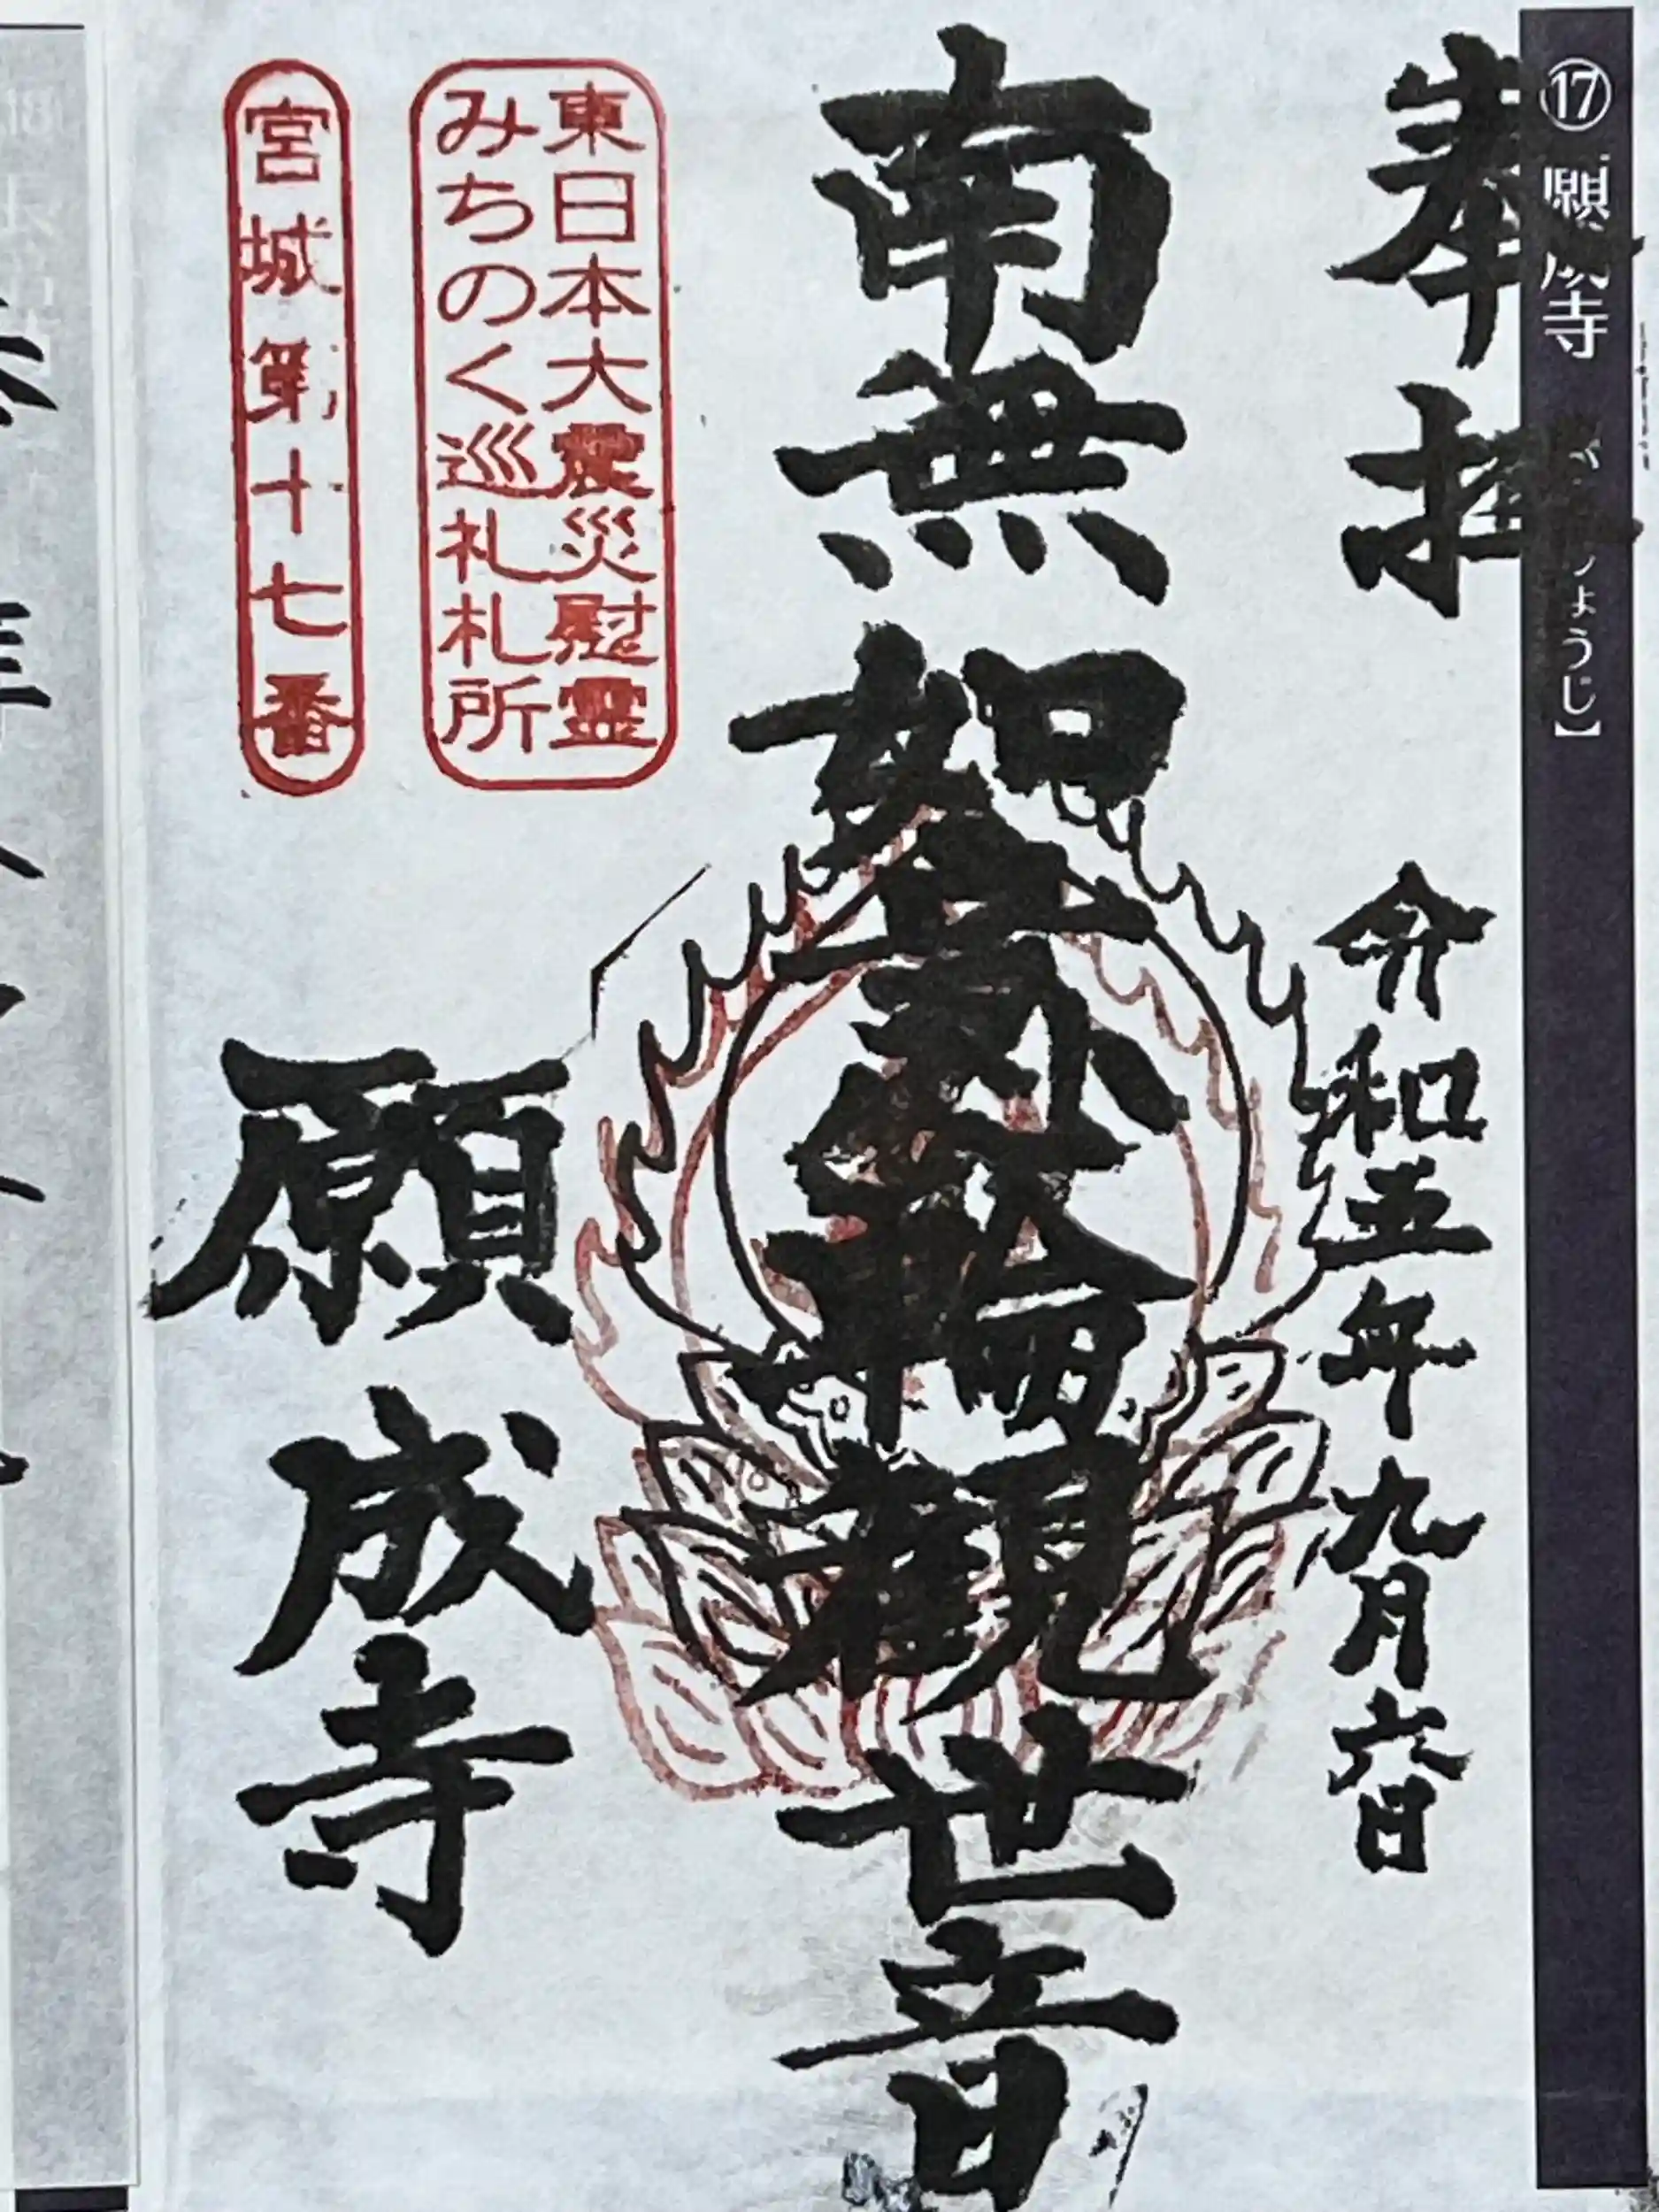 ⑰ 願成寺
ょうじ】
奉拝
令和五年九月六日
南無如意輪観世音
東日本大震災慰霊
みちのく巡礼札所
宮城第十七番
願成寺